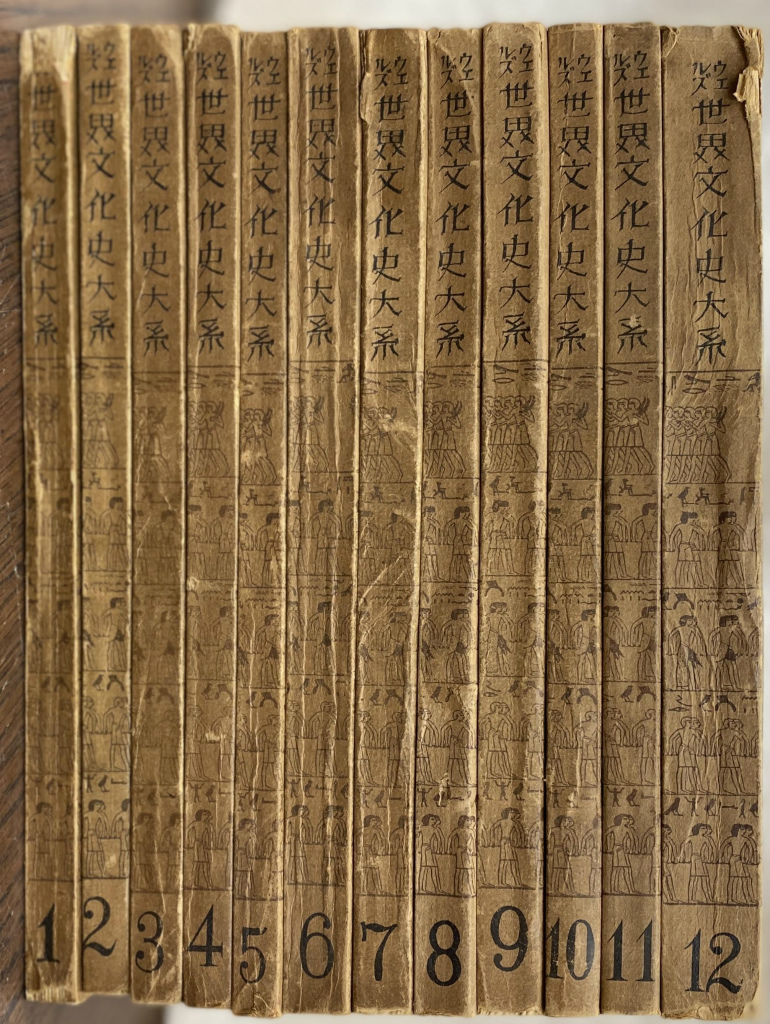 世界文化史大系
1
ウエルズ 世界文化史大系
2
ウエルズ 世界文化史大系
3
ウエルズ 世界文化史大系
4
ウエルズ 世界文化史大系
5
ウエルズ 世界文化史大系
6
ウエルズ 世界文化史大系
7
ウエルズ 世界文化史大系
8
ウエルズ 世界文化史大系
9
ウエルズ 世界文化史大系
10
ウエルズ 世界文化史大系
11
ウエルズ 世界文化史大系
12